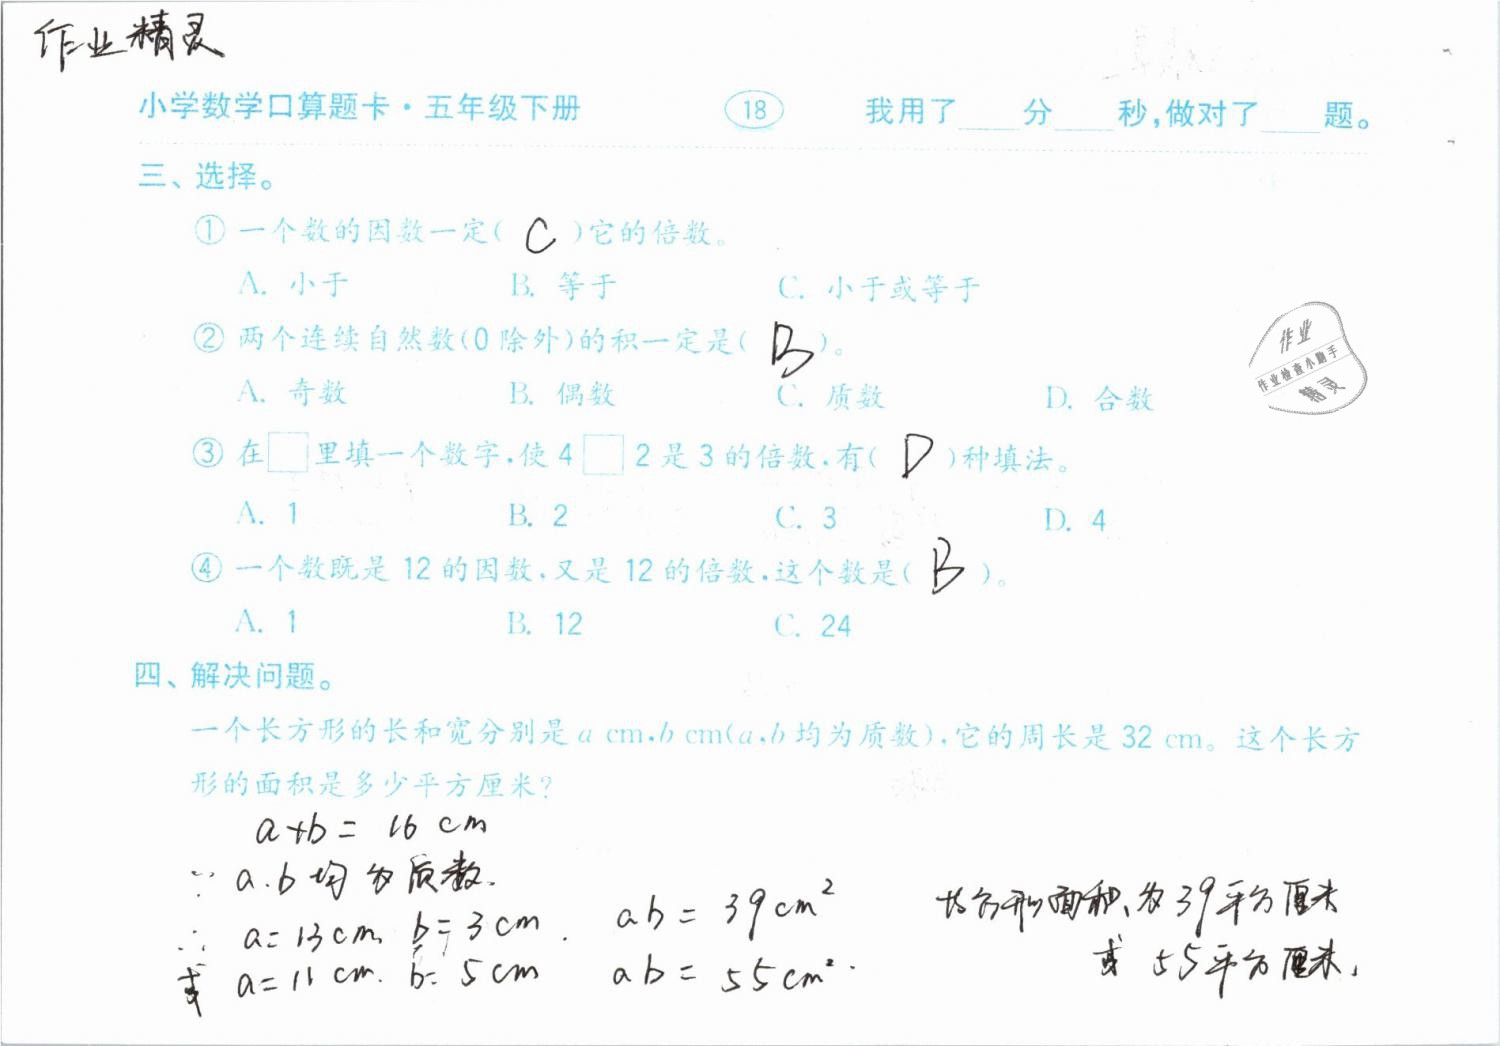 作业精灵
小学数学口算题卡·五年级下册 18 我用了____分____秒,做对了____题。
三、选择。
① 一个数的因数一定( C )它的倍数。
A. 小于 B. 等于 C. 小于或等于
② 两个连续自然数(0除外)的积一定是( B )。
A. 奇数 B. 偶数 C. 质数 D. 合数
作业
作业检查小助手
精灵
③ 在□里填一个数字,使4□2是3的倍数,有( D )种填法。
A. 1 B. 2 C. 3 D. 4
④ 一个数既是12的因数,又是12的倍数,这个数是( B )。
A. 1 B. 12 C. 24
四、解决问题。
一个长方形的长和宽分别是a cm,b cm(a,b均为质数),它的周长是32 cm。这个长方
形的面积是多少平方厘米?
a+b= 16 cm
∵ a.b均为质数.
∴ a=13cm, b=3cm. ab=39cm² 长方形面积为39平方厘米
或 a=11cm. b=5cm ab=55cm². 或55平方厘米.